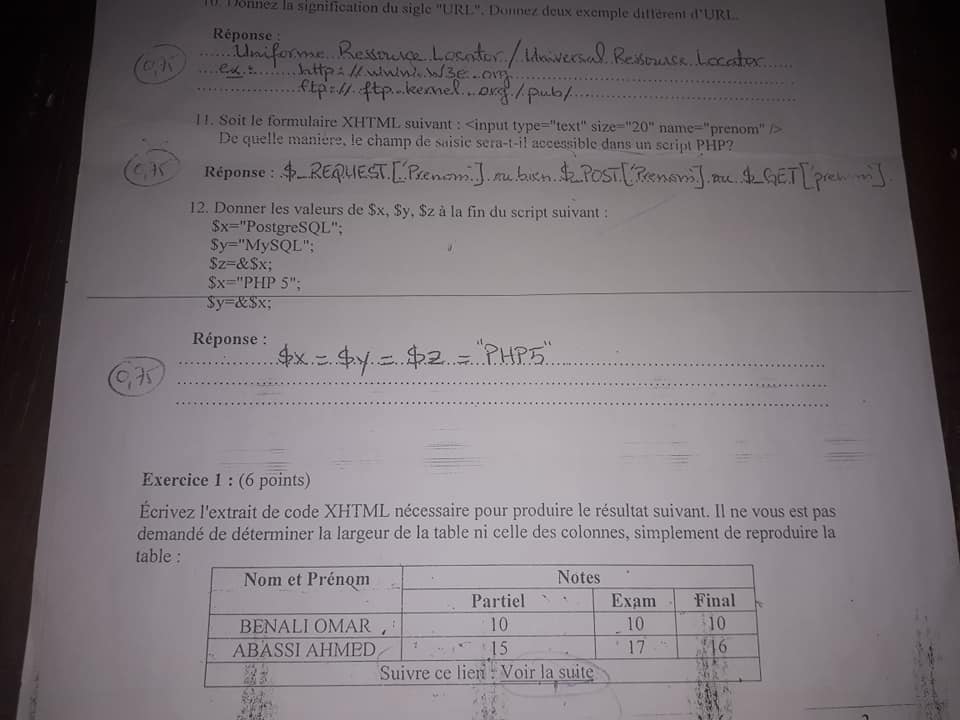 10. Donnez la signification du sigle "URL". Donnez deux exemple différent d'URL.
Réponse :
Uniforme Ressource Locator / Universal Ressource Locator
0,75
ex : http://www.w3c.org
ftp://ftp.kernel.org/pub/
11. Soit le formulaire XHTML suivant : <input type="text" size="20" name="prenom" />
De quelle manière, le champ de saisie sera-t-il accessible dans un script PHP?
0,75
Réponse : $_REQUEST['Prenom'] ou bien $_POST['Prenom'] ou $_GET['prenom'].
12. Donner les valeurs de $x, $y, $z à la fin du script suivant :
$x="PostgreSQL";
$y="MySQL";
$z=&$x;
$x="PHP 5";
$y=&$x;
Réponse :
$x = $y = $z = "PHP5"
0,75
Exercice 1 : (6 points)
Écrivez l'extrait de code XHTML nécessaire pour produire le résultat suivant. Il ne vous est pas
demandé de déterminer la largeur de la table ni celle des colonnes, simplement de reproduire la
table :
Nom et Prénom Notes
Partiel Exam Final
BENALI OMAR 10 10 10
ABASSI AHMED 15 17 16
Suivre ce lien : Voir la suite